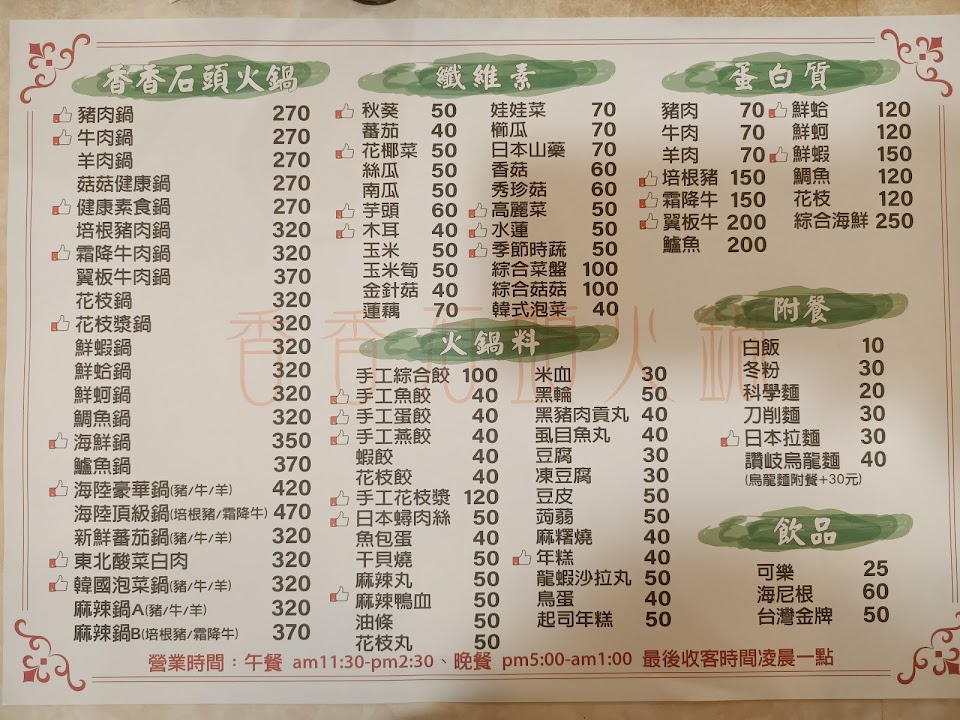 香香石頭火鍋
豬肉鍋 270
牛肉鍋 270
羊肉鍋 270
菇菇健康鍋 270
健康素食鍋 270
培根豬肉鍋 320
霜降牛肉鍋 320
翼板牛肉鍋 370
花枝鍋 320
花枝漿鍋 320
鮮蝦鍋 320
鮮蛤鍋 320
鮮蚵鍋 320
鯛魚鍋 320
海鮮鍋 350
鱸魚鍋 370
海陸豪華鍋(豬/牛/羊) 420
海陸頂級鍋(培根豬/霜降牛) 470
新鮮蕃茄鍋(豬/牛/羊) 320
東北酸菜白肉 320
韓國泡菜鍋(豬/牛/羊) 320
麻辣鍋A(豬/牛/羊) 320
麻辣鍋B(培根豬/霜降牛) 370
纖維素
秋葵 50
蕃茄 40
花椰菜 50
絲瓜 50
南瓜 50
芋頭 60
木耳 40
玉米 50
玉米筍 50
金針菇 40
蓮藕 70
娃娃菜 70
櫛瓜 70
日本山藥 70
香菇 60
秀珍菇 60
高麗菜 50
水蓮 50
季節時蔬 50
綜合菜盤 100
綜合菇菇 100
韓式泡菜 40
火鍋料
手工綜合餃 100
手工魚餃 40
手工蛋餃 40
手工燕餃 40
蝦餃 40
花枝餃 40
手工花枝漿 120
日本蟳肉絲 50
魚包蛋 40
干貝燒 50
麻辣丸 50
麻辣鴨血 50
油條 50
花枝丸 50
米血 30
黑輪 50
黑豬肉貢丸 40
虱目魚丸 40
豆腐 30
凍豆腐 30
豆皮 50
蒟蒻 50
麻糬燒 40
年糕 40
龍蝦沙拉丸 50
鳥蛋 40
起司年糕 50
蛋白質
豬肉 70
牛肉 70
羊肉 70
培根豬 150
霜降牛 150
翼板牛 200
鱸魚 200
鮮蛤 120
鮮蚵 120
鮮蝦 150
鯛魚 120
花枝 120
綜合海鮮 250
附餐
白飯 10
冬粉 30
科學麵 20
刀削麵 30
日本拉麵 30
讚岐烏龍麵 40
(烏龍麵附餐+30元)
飲品
可樂 25
海尼根 60
台灣金牌 50
香香石頭火鍋
營業時間：午餐 am11:30-pm2:30、晚餐 pm5:00-am1:00 最後收客時間凌晨一點